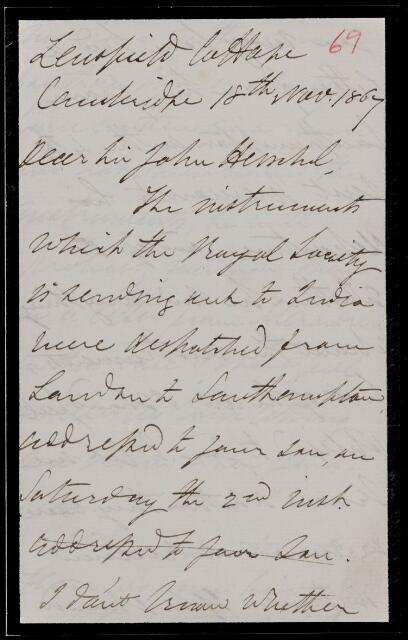 Lensfield Cottage 69
Cambridge 18th Nov. 1867
Dear Sir John Herschel,
The instruments
which the Royal Society
is sending out to India
were despatched from
London to Southampton,
addressed to your son, on
Saturday the 2nd inst.
addressed to your son.
I don't know whether